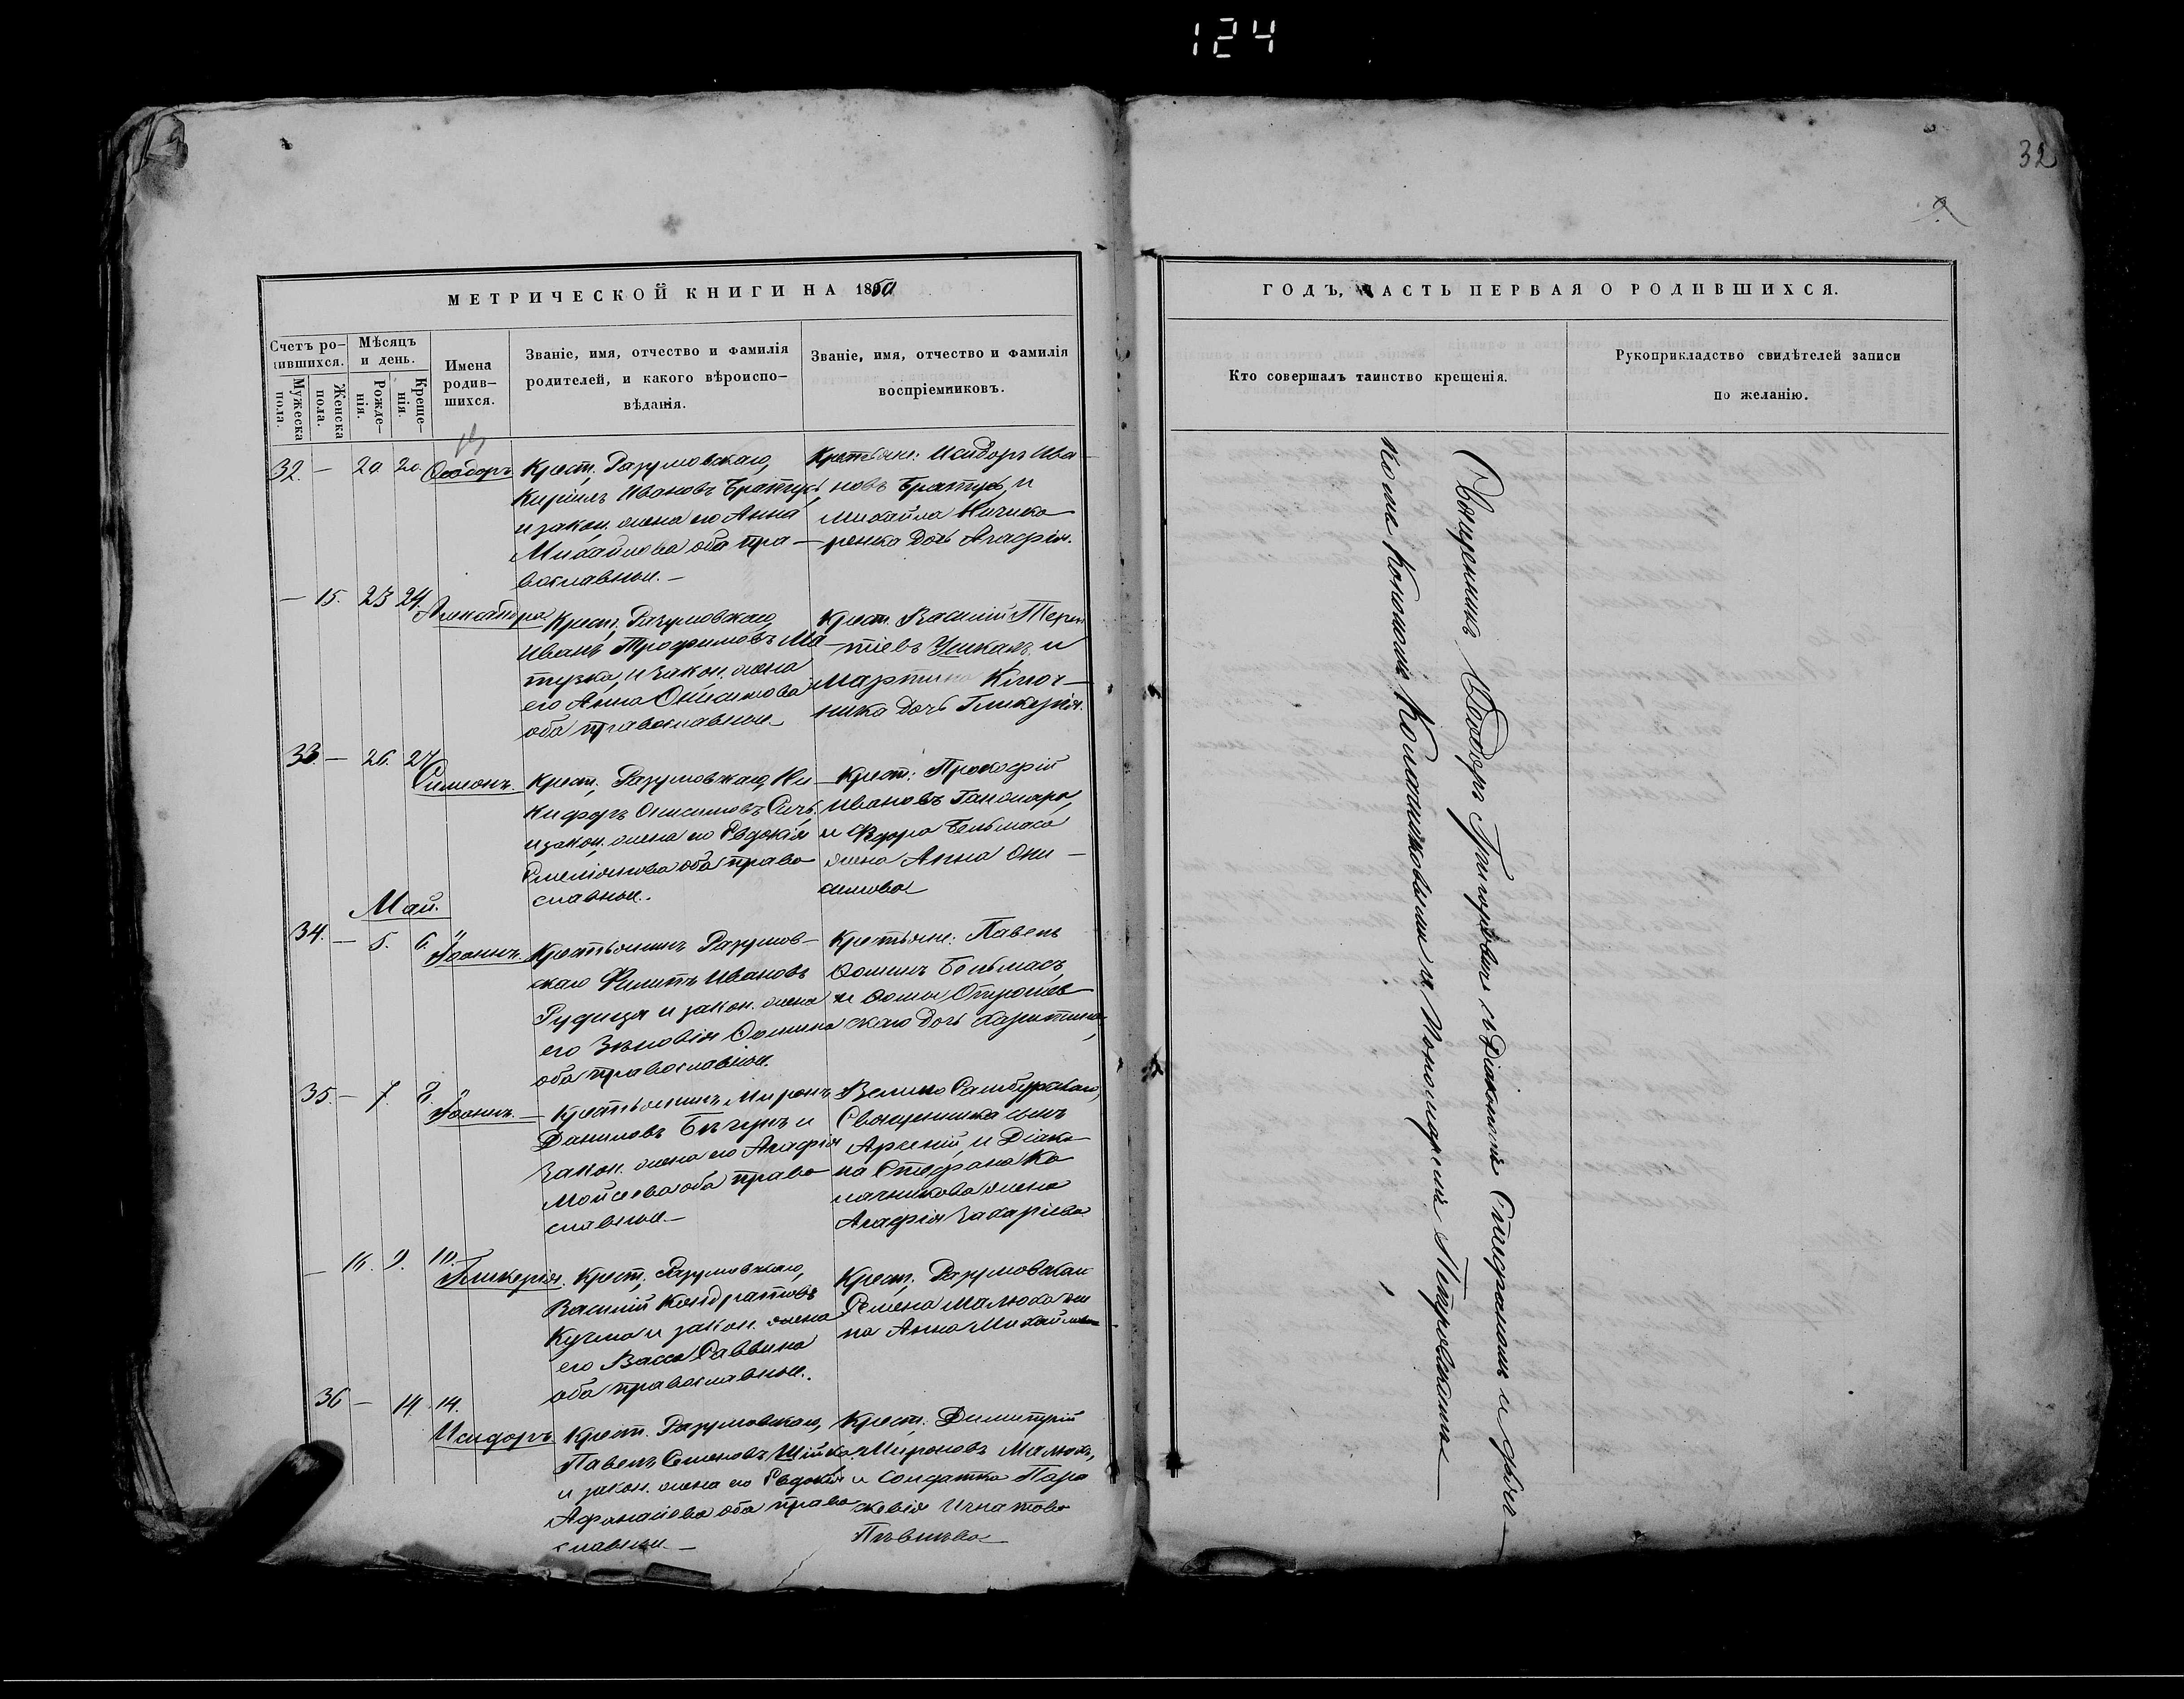 124
32
МЕТРИЧЕСКОЙ КНИГИ НА 1850
Счетъ ро-
дившихся.
Мужеска пола.
Женска пола.
Мѣсяцъ
и день.
Рожде-
нія.
Креще-
нія.
Имена
родив-
шихся.
Званіе, имя, отчество и фамилія
родителей, и какого вѣроиспо-
вѣданія.
Званіе, имя, отчество и фамилія
воспріемниковъ.
32. — 20 20. Ѳеодоръ
Крест. Разумовскаго,
Кирилъ Ивановъ
и закон. жена его Анна
Михайлова оба пра-
вославные. —
Крестьяне: Исидоръ Ива-
новъ и
Михайла
дочь Агафія.
— 15. 23 24. Александра
Крест. Разумовскаго,
Иванъ Трофимовъ Ма-
тузка, и закон. жена
его Анна Онисимова
оба православные
Крест. Василій Терен-
тіевъ и
Мартина Ключ-
ника дочь Гликерія.
33. — 26. 27. Симеонъ.
Крест. Разумовскаго, Ни-
кифоръ Онисимовъ
и закон. жена его Евдокія
Емеліанова оба право
славные.
Крест: Прокофій
Ивановъ Гончаръ,
и Ѳедора Бельмаса
жена Анна Они-
симова
Май.
34. — 5. 6. Іоаннъ.
Крестьянинъ Разумов-
скаго Филипъ Ивановъ
и закон. жена
его Зѣновія Ѳомина
оба православные.
Крестьяне: Павелъ
Ѳоминъ Бельмасъ,
и Ѳомы
скаго дочь Харитина,
35. — 7. 8. Іоаннъ. —
Крестьянинъ Миронъ
Даниловъ Бѣгунъ и
закон. жена его Агафія
Мойсеева оба право
славные —
Священника сынъ
Арсеній, и Діако-
на Стефана Ко
лачникова жена
Агафія Захаріева.
— 16. 9. 10. Гликерія.
Крест. Разумовскаго,
Василій Кондратовъ
Кучма и закон. жена
его Васса Саввина
оба православные.
Крест. Разумовскаго
Семена Малюка же
на Анна Михайлова
36 — 14. 14. Исидоръ
Крест. Разумовскаго,
Павелъ Семеновъ Шійка
и закон. жена его Евдокія
Афанасіева оба право
славные. —
Крест: Димитрій
Мироновъ Малюкъ,
и Солдатка Пара
скевія Игнатова
ГОДЪ, ЧАСТЬ ПЕРВАЯ О РОДИВШИХСЯ.
Кто совершалъ таинство крещенія.
Рукоприкладство свидѣтелей записи
по желанію.
Священникъ Ѳеодоръ Григоровичъ съ Діакономъ Стефаномъ и
Колачниковыми и Пономаремъ Петровскимъ —